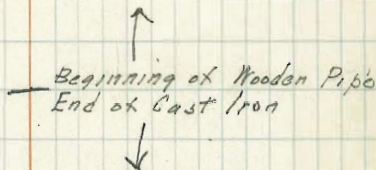 Beginning of Wooden Pipe
End of Cast Iron